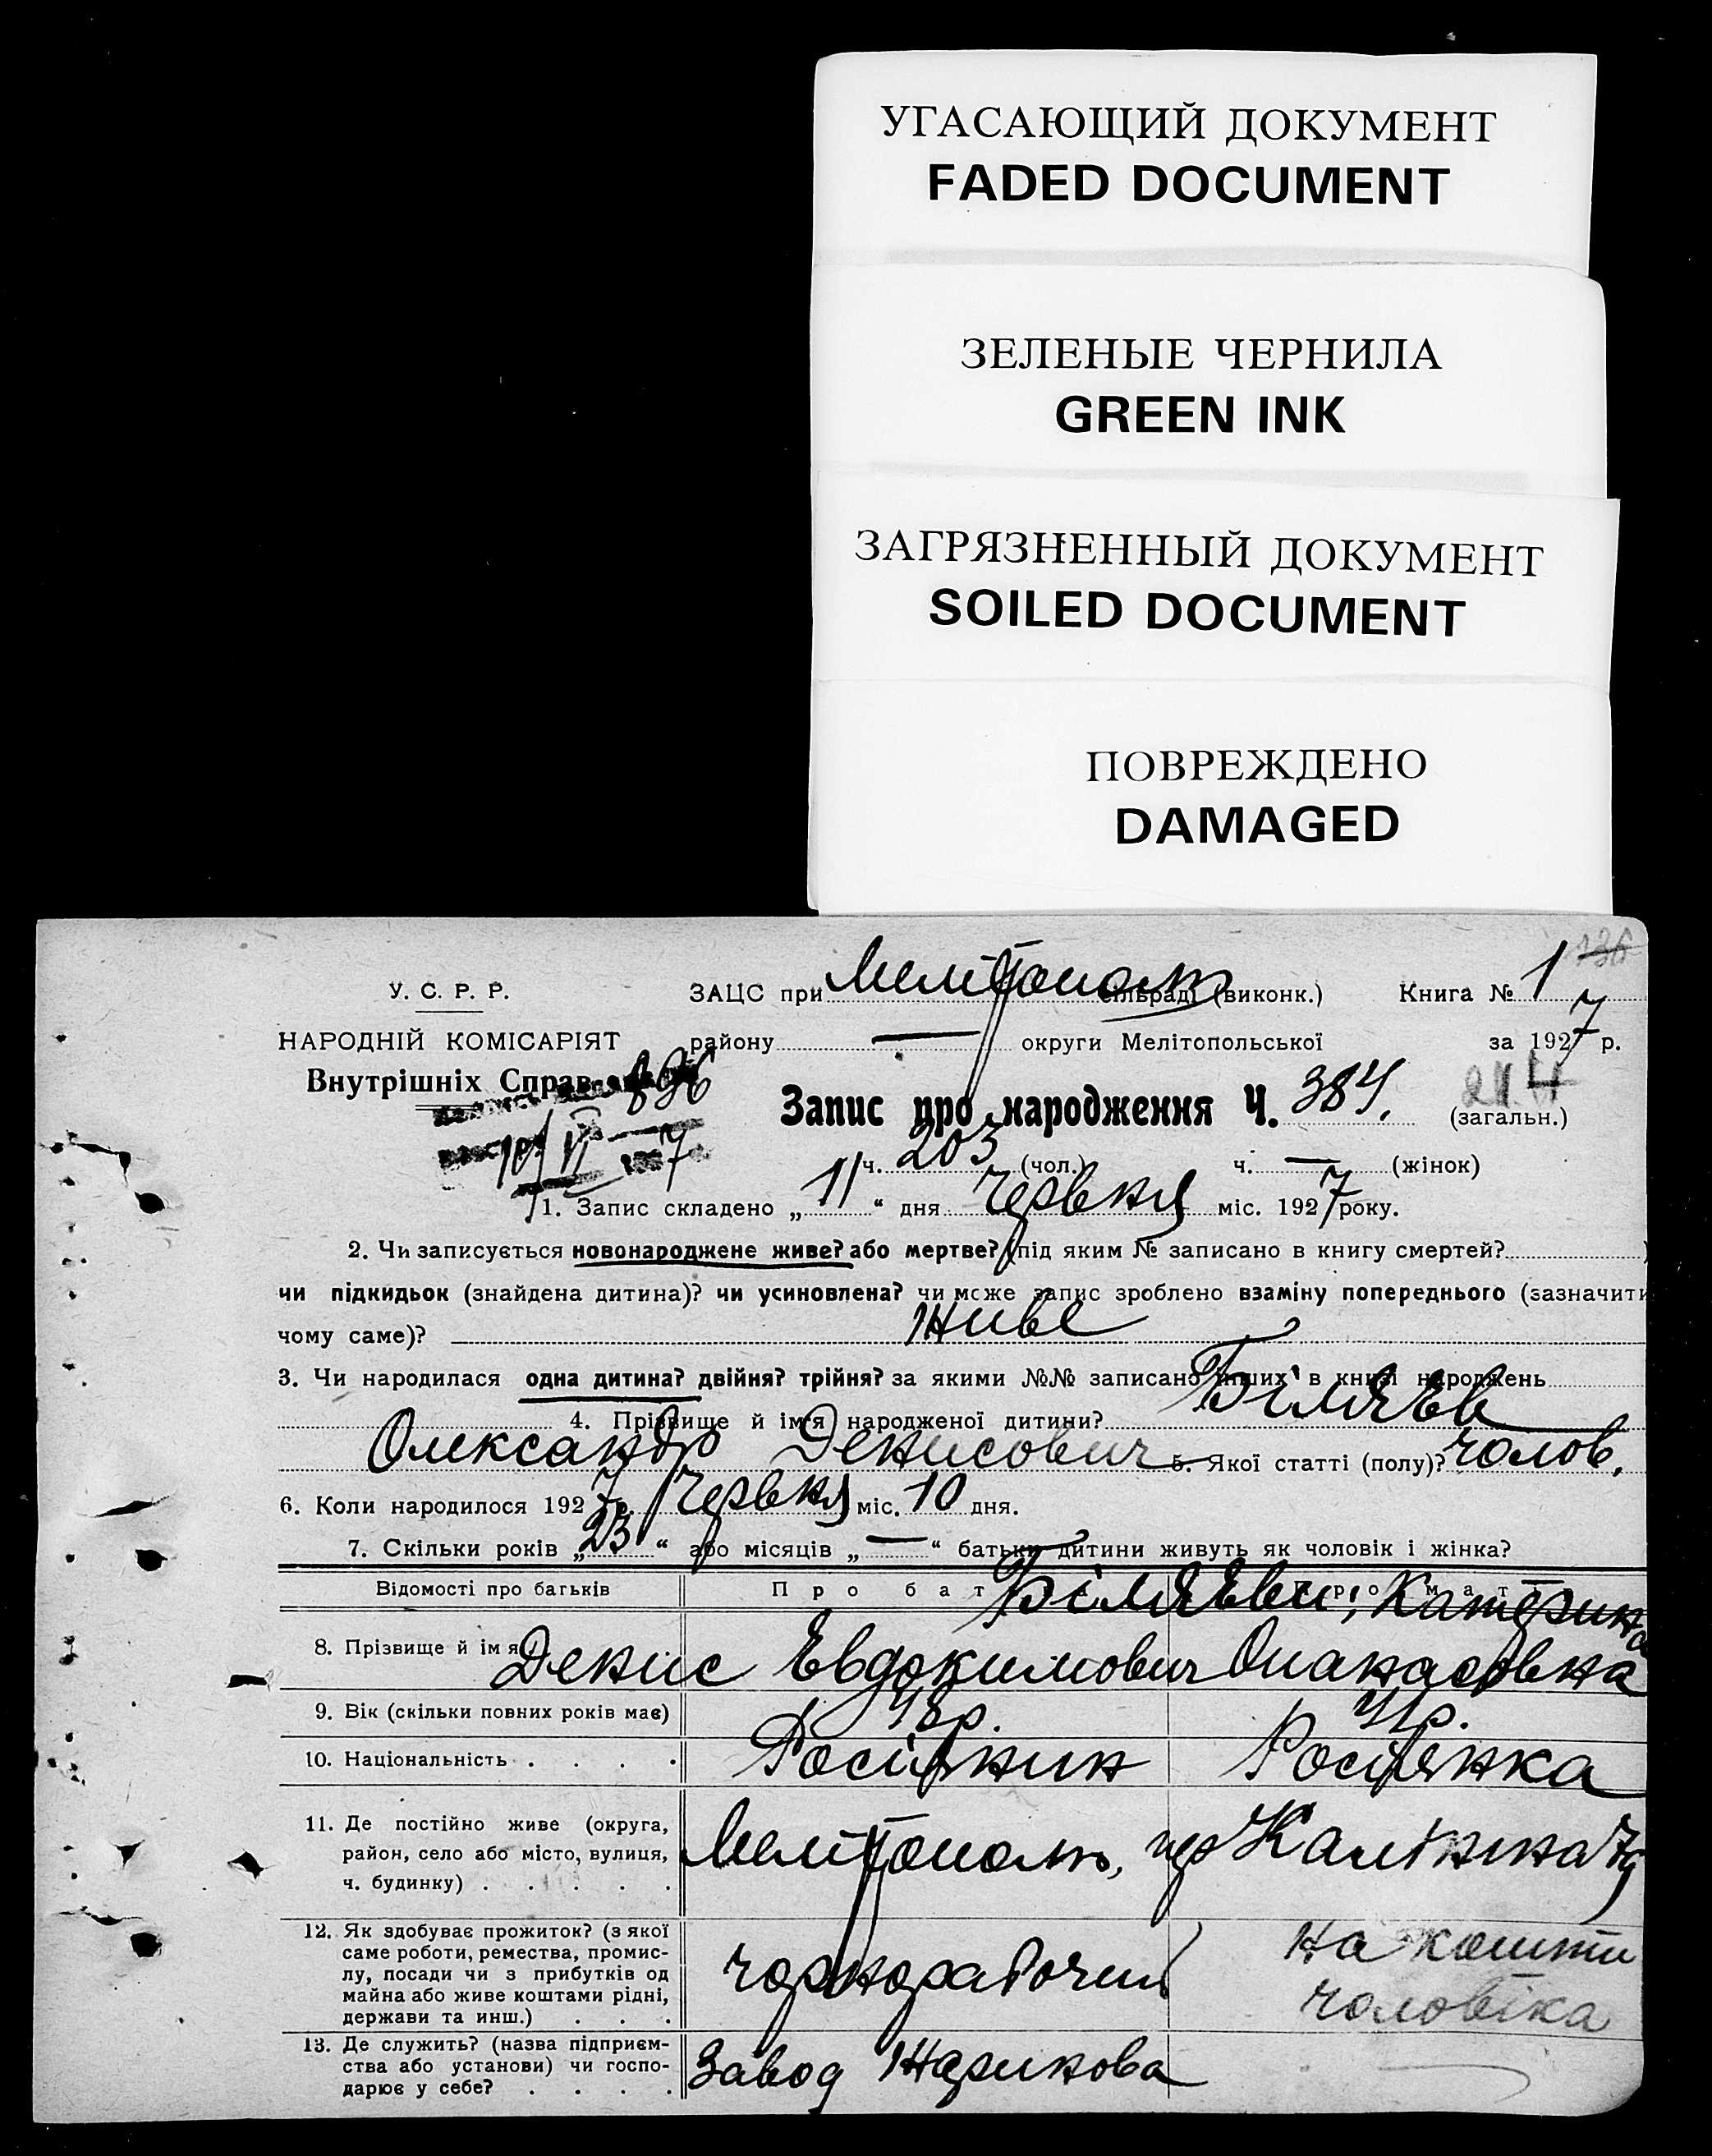 УГАСАЮЩИЙ ДОКУМЕНТ
FADED DOCUMENT
ЗЕЛЕНЫЕ ЧЕРНИЛА
GREEN INK
ЗАГРЯЗНЕННЫЙ ДОКУМЕНТ
SOILED DOCUMENT
ПОВРЕЖДЕНО
DAMAGED
У. С. Р. Р.
НАРОДНІЙ КОМІСАРІЯТ
Внутрішніх Справ
896
10/VI 7
ЗАЦС при Мелітополь сільраді (виконк.) Книга № 1
району — округи Мелітопольської за 1927 р.
Запис про народження Ч. 384. (загальн.)
ч. 203 (чол.) ч. — (жінок)
1. Запис складено „11“ дня Червня міс. 1927 року.
2. Чи записується новонароджене живе? або мертве? (під яким № записано в книгу смертей? )
чи підкидьок (знайдена дитина)? чи усиновлена? чи може запис зроблено взаміну попереднього (зазначити
чому саме)? живе
3. Чи народилася одна дитина? двійня? трійня? за якими №№ записано інших в книзі народжень
4. Прізвище й ім'я народженої дитини? Біляєв
Олександр Денисович 5. Якої статті (полу)? чолов.
6. Коли народилося 1927 р. Червня міс. 10 дня.
7. Скільки років „23“ або місяців „—“ батьки дитини живуть як чоловік і жінка?
Відомості про батьків
Біляєви; Катерина
8. Прізвище й ім'я Денис Евдокимович Опанасовна
9. Вік (скільки повних років має) 48р. 41р.
10. Національність . . . . Росіянин Росіянка
11. Де постійно живе (округа,
район, село або місто, вулиця,
ч. будинку) . . . . .
Мелітополь, Калініна
12. Як здобуває прожиток? (з якої
саме роботи, ремества, промис-
лу, посади чи з прибутків од
майна або живе коштами рідні,
держави та инш.) . . .
чорнорабочий
на кошти
чоловіка
13. Де служить? (назва підприєм-
ства або установи) чи госпо-
дарює у себе? . . . .
Завод Жарикова